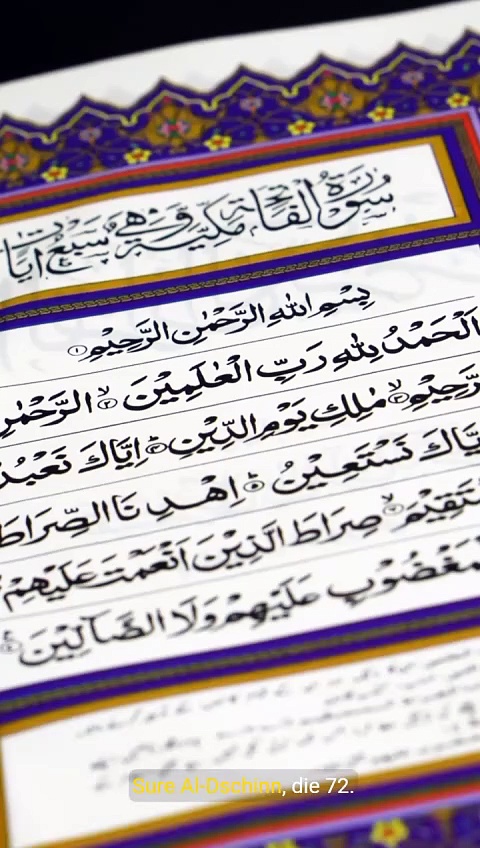 سُوْرَةُ الْفَاتِحَةِ مَكِّيَّةٌ وَّهِيَ سَبْعُ اٰيَاتٍ
بِسْمِ اللهِ الرَّحْمٰنِ الرَّحِيْمِ ۝١
اَلْحَمْدُ لِلّٰهِ رَبِّ الْعٰلَمِيْنَ ۝٢ الرَّحْمٰنِ
الرَّحِيْمِ ۝٣ مٰلِكِ يَوْمِ الدِّيْنِ ۝٤ اِيَّاكَ نَعْبُدُ
اِيَّاكَ نَسْتَعِيْنُ ۝٥ اِهْدِنَا الصِّرَاطَ
صِرَاطَ الَّذِيْنَ اَنْعَمْتَ عَلَيْهِمْ
الْمَغْضُوْبِ عَلَيْهِمْ وَلَا الضَّآلِّيْنَ
Sure Al-Dschinn, die 72.